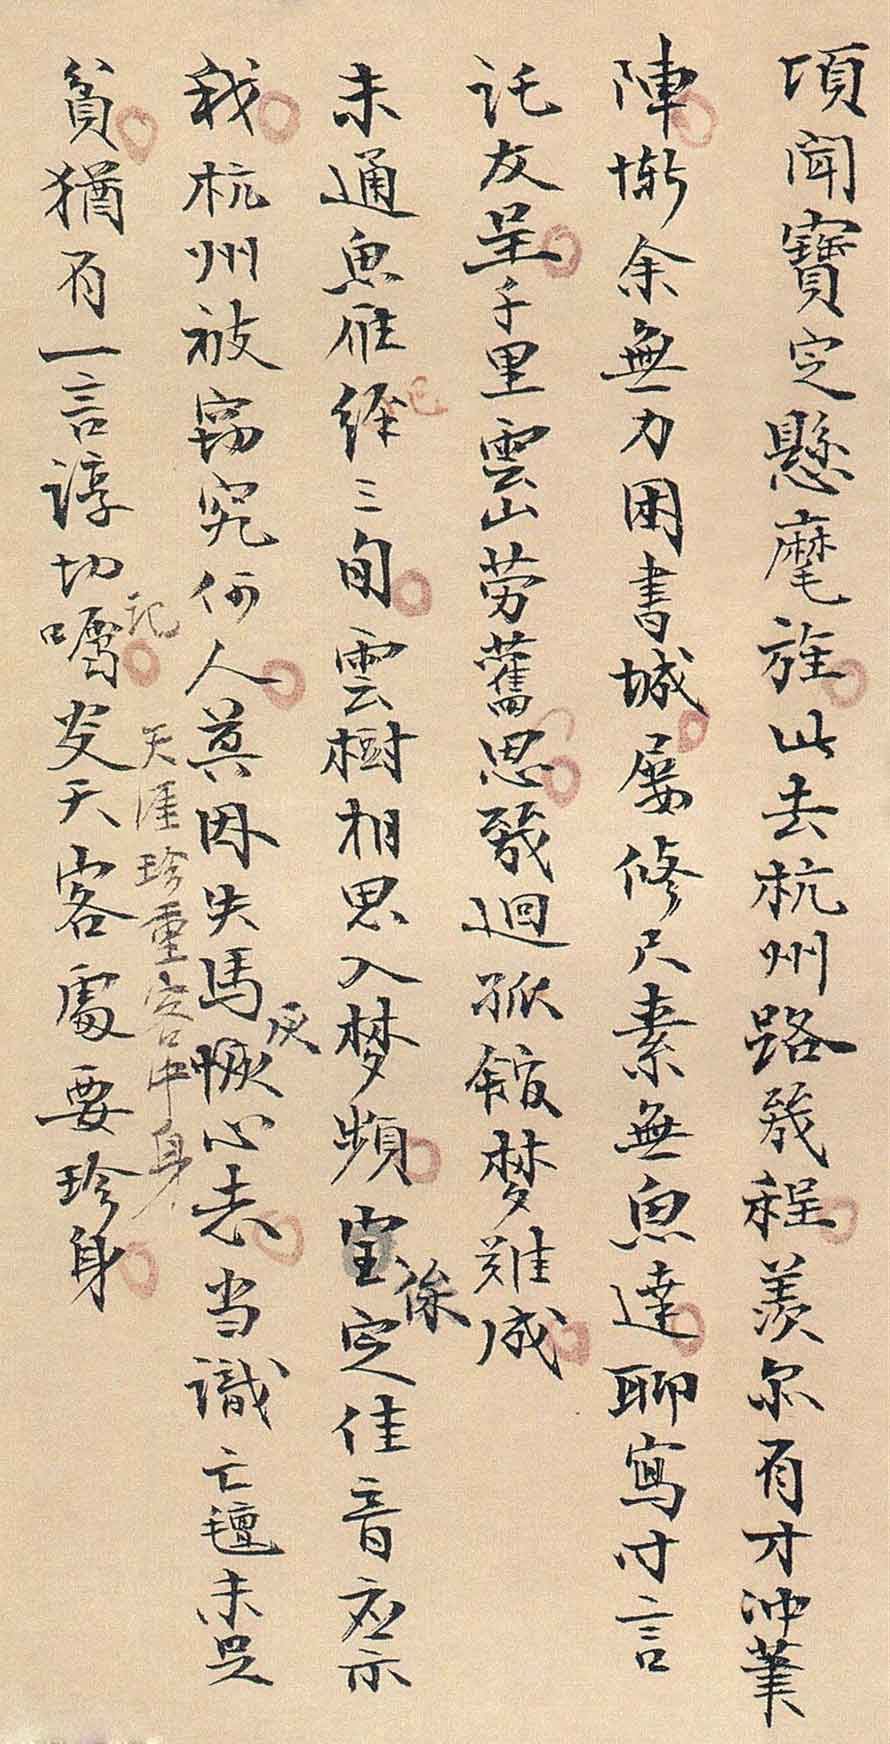 項聞寶定懸麾旌此去杭州路幾程羨尔有才冲筆
陣慚余無力困書城屡修尺素無魚達聊寫吋言
託友呈千里雲山劳舊思幾迴孤館梦難成
未通魚雁经三旬雲樹相思入梦頻宝定佳音应示
已
保
我杭州被窃究何人莫因失馬恢心志当識亡氊未是
灰
貧猶有一言諄切嘱天客處要珍身
記
天涯珍重客中身